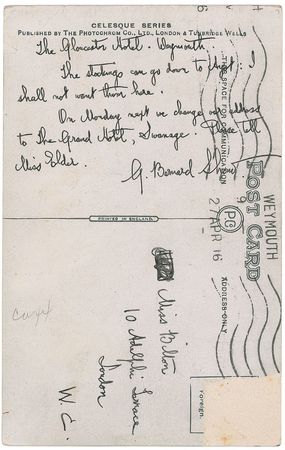 CELESQUE SERIES
PUBLISHED BY THE PHOTOCHROM CO., LTD., LONDON & TUNBRIDGE WELLS
The Gloucester Hotel. Weymouth.
The stockings can go down to : I
shall not want them here.
On Monday next we change our address
to The Grand Hotel, Swanage. Please tell
Miss Elder.
G. Bernard Shaw.
THIS SPACE FOR COMMUNICATION
POST CARD
ADDRESS-ONLY
WEYMOUTH
2 APR 16
PRINTED IN ENGLAND
Miss Bilton
10 Adelphi Terrace
London
W.C.
Foreign.